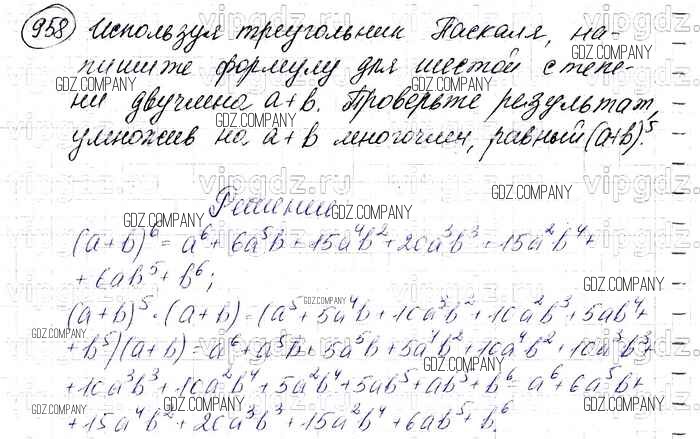 958 Используя треугольник Паскаля, на-
пишите формулу для шестой степе-
ни двучлена a+b. Проверьте результат,
умножив на a+b многочлен, равный (a+b)⁵.
Решение
(a+b)⁶ = a⁶ + 6a⁵b + 15a⁴b² + 20a³b³ + 15a²b⁴ +
+ 6ab⁵ + b⁶;
(a+b)⁵ · (a+b) = (a⁵ + 5a⁴b + 10a³b² + 10a²b³ + 5ab⁴ +
+ b⁵)(a+b) = a⁶ + a⁵b + 5a⁵b + 5a⁴b² + 10a⁴b² + 10a³b³ +
+ 10a³b³ + 10a²b⁴ + 5a²b⁴ + 5ab⁵ + ab⁵ + b⁶ = a⁶ + 6a⁵b +
+ 15a⁴b² + 20a³b³ + 15a²b⁴ + 6ab⁵ + b⁶.